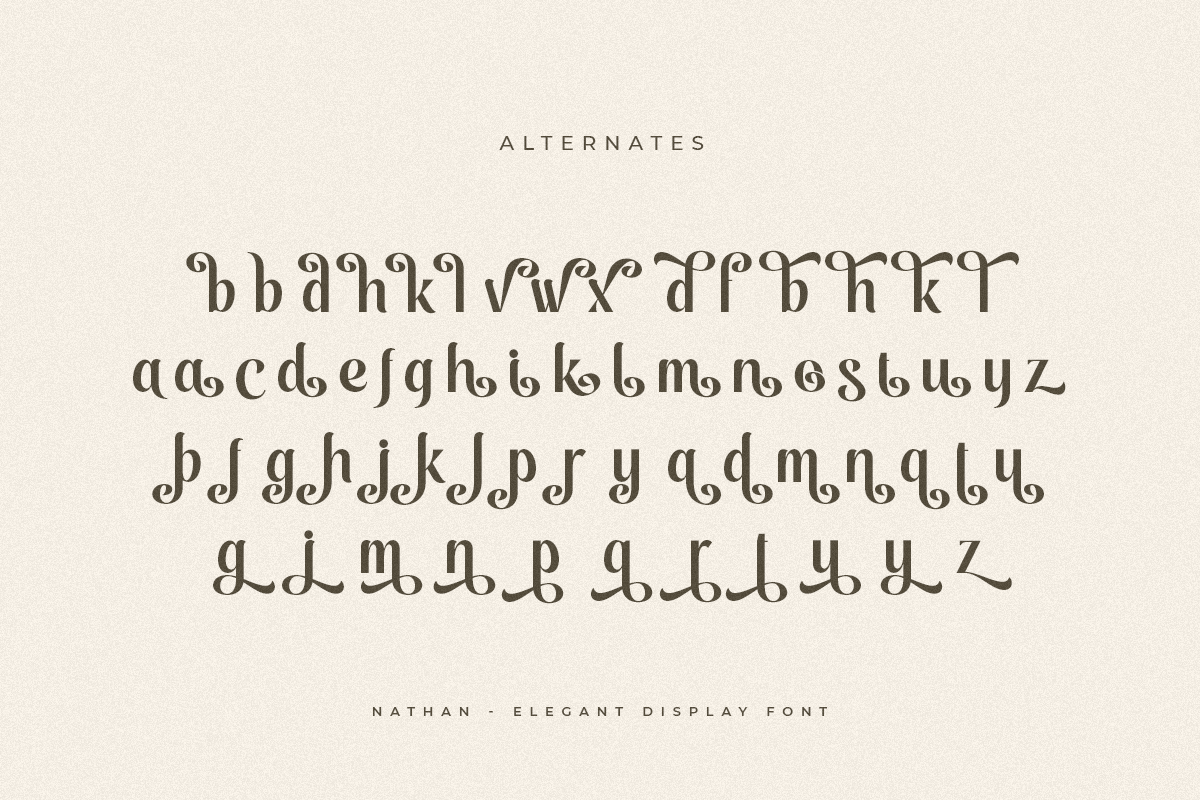 ALTERNATES
b b d h k l v w x d f b h k l
a a c d e f g h i k l m n o s t u y z
b f g h j k l p r y a d m n q t u
g j m n p q r t u y z
NATHAN - ELEGANT DISPLAY FONT